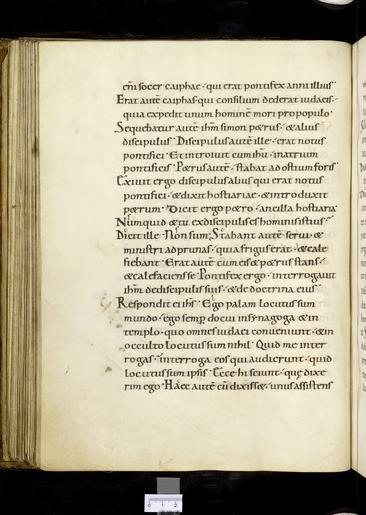 eni socer caiphae · qui erat pontifex anni illius ·
Erat aute caiphas · qui consilium dederat iudaeis ·
quia expedit unum homine mori pro populo ·
Sequebatur aute ihm simon petrus · & alius
discipulus · Discipulus aute ille · erat notus
pontifici · Et introiuit cum ihu · in atrium
pontificis · Petrus aute · stabat ad ostium foris ·
Exiuit ergo discipulus alius qui erat notus
pontifici · & dixit hostiariae · & introduxit
petrum · Dicit ergo petro · ancilla hostiaria ·
Numquid & tu ex discipulis es hominis istius ·
Dicit ille · Non sum · Stabant aute serui · &
ministri ad prunas · quia frigus erat · & cale
fiebant · Erat aute cum eis & petrus stans ·
& calefaciens se · Pontifex ergo · interrogauit
ihm de discipulis suis · & de doctrina eius ·
Respondit ei ihs · Ego palam locutus sum
mundo · ego semp docui in synagoga & in
templo · quo omnes iudaei conueniunt · & in
occulto locutus sum nihil · Quid me inter
rogas · interroga eos qui audierunt · quid
locutus sum ipsis · Ecce hi sciunt · que dixe
rim ego · Haec aute cu dixisset · unus assistens